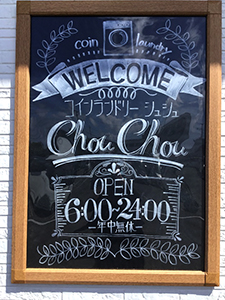 coin laundry
WELCOME
コインランドリー シュシュ
Chou Chou
OPEN
6:00-24:00
年中無休